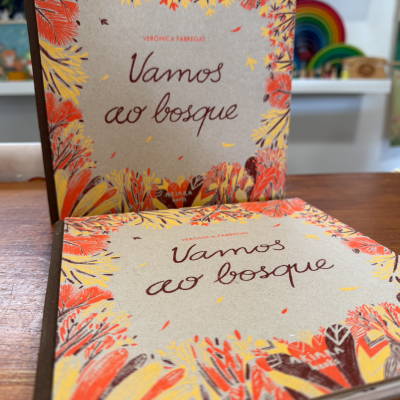 VERÓNICA FABREGAT
Vamos
ao bosque
VERÓNICA FABREGAT
Vamos
ao bosque